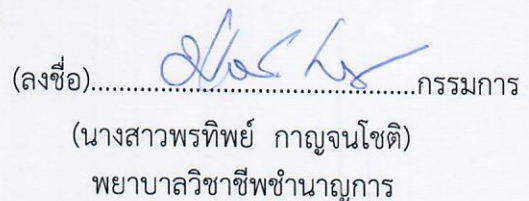 (ลงชื่อ)..............................................กรรมการ
(นางสาวพรทิพย์ กาญจนโชติ)
พยาบาลวิชาชีพชำนาญการ